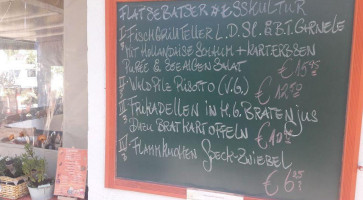 FLATSEBATSER # ESSKULTUR
I = FISCHGRILLTELLER L.D.SL. & B.T. GARNELE
MIT HOLLANDAISE SCHAUM + KARTER-ESEN
PÜREE & SEEALGEN SALAT
€ 15,95
II = WALDPILZ RISOTTO (V.G.)
€ 12,50
III = FRIKADELLEN IN H.G. BRATENJUS
DAZU BRATKARTOFFELN
IV = FLAMMKUCHEN SPECK-ZWIEBEL